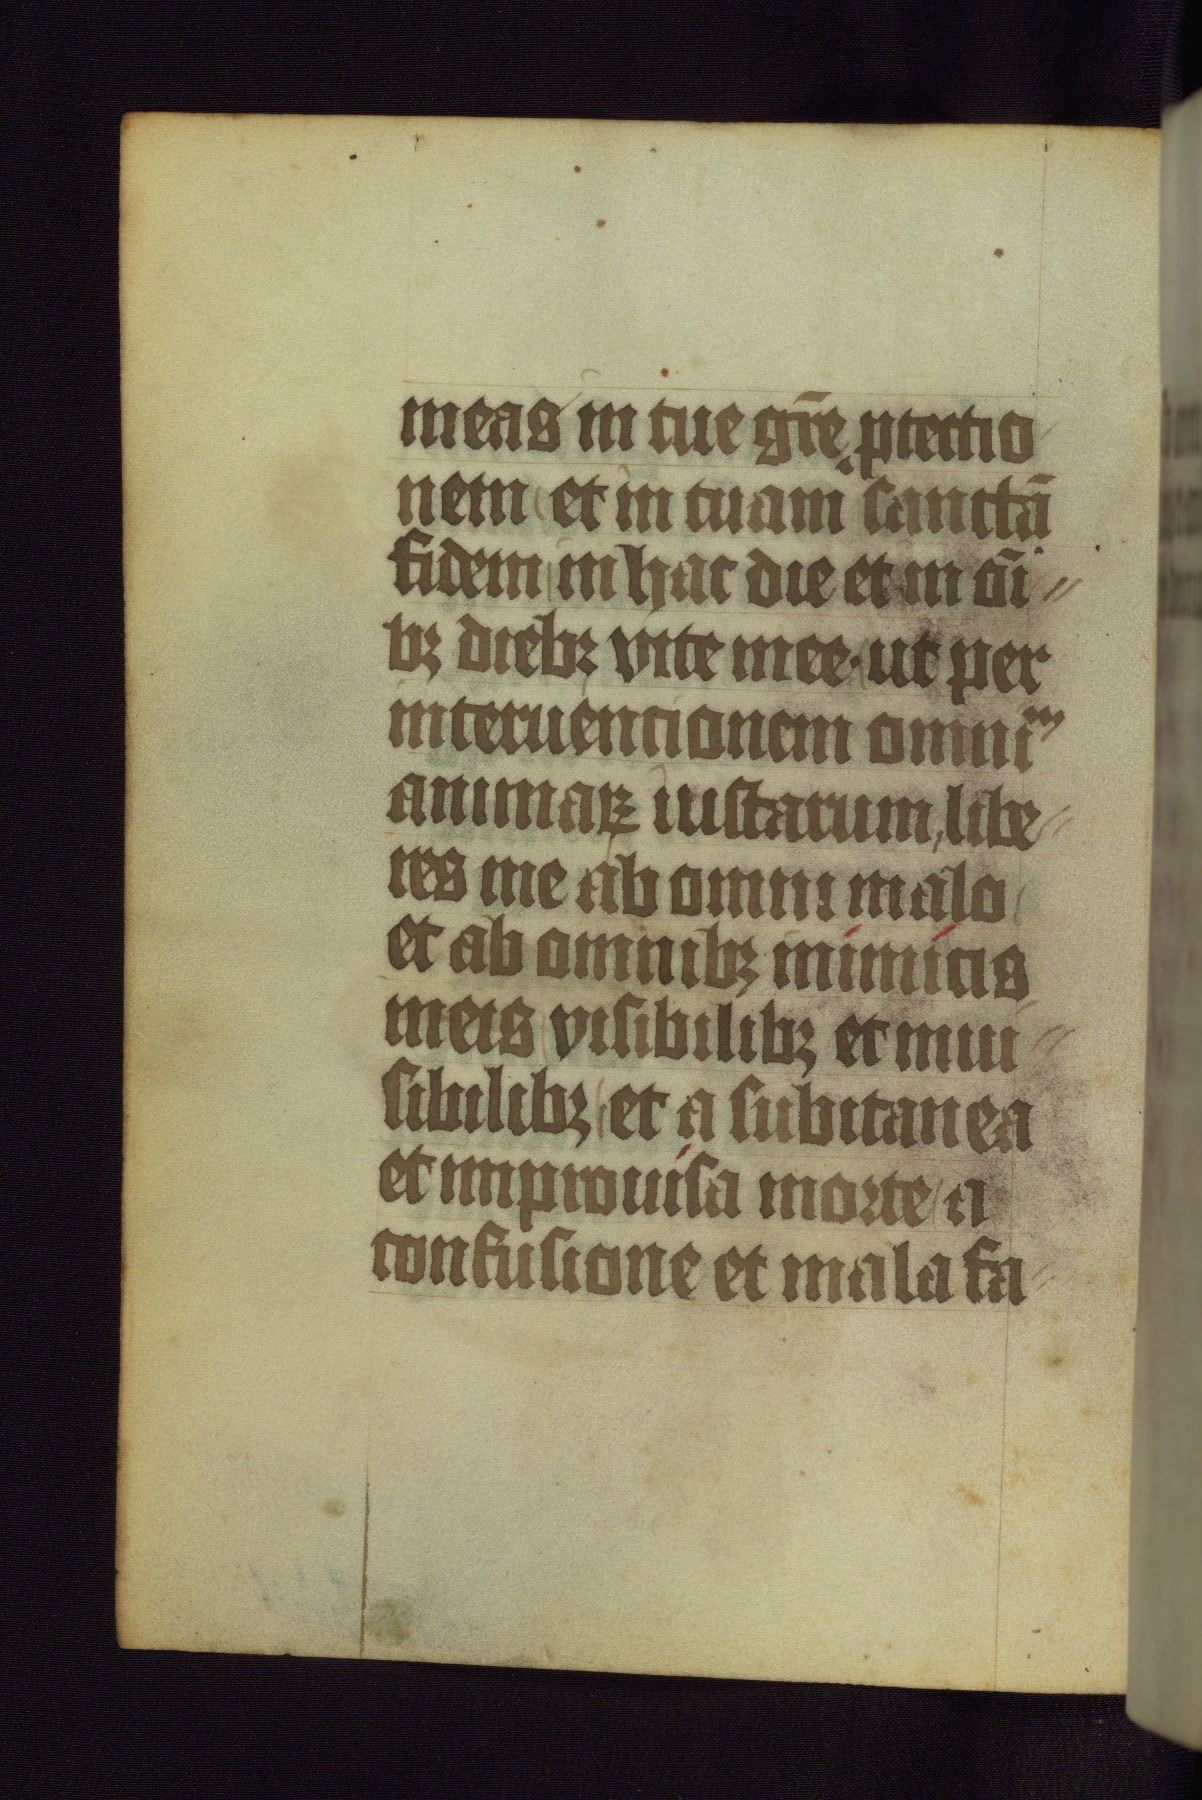 meas in tue gr̄e ꝓtectio
nem et in tuam sanctā
fidem in hac die et in oī
bꝫ diebꝫ vite mee ut per
interuencionem omniᵐ
animaꝝ iustarum, libe
res me ab omni malo
et ab omnibꝫ inimicis
meis visibilibꝫ et inui
sibilibꝫ et a subitanea
et improuisa morte a
confusione et mala fa